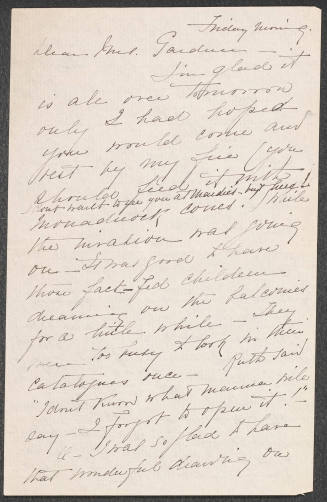 Friday morning.
Dear Mrs. Gardner —
I'm glad it
is all over tomorrow
only I had hoped
you would come and
rest by my fire (you
should feed it with
but wait to see you at
Monadnock cones!) while
the invasion was going
on — It was good to have
those fact-fed children
dreaming on the balconies
for a little while — They
were too busy to look in their
catalogues once — Ruth said
"I don't know what mamma will
say — I forgot to open it!"
— I was so glad to have
that wonderful drawing on